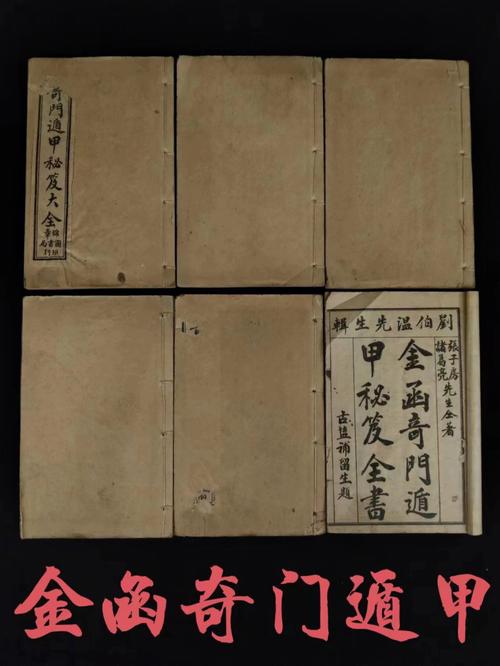 奇門遁甲秘笈大全
劉伯溫先生輯
張子房
諸葛亮
先生仝著
金函奇門遁
甲秘笈全書
補留生題
金函奇门遁甲